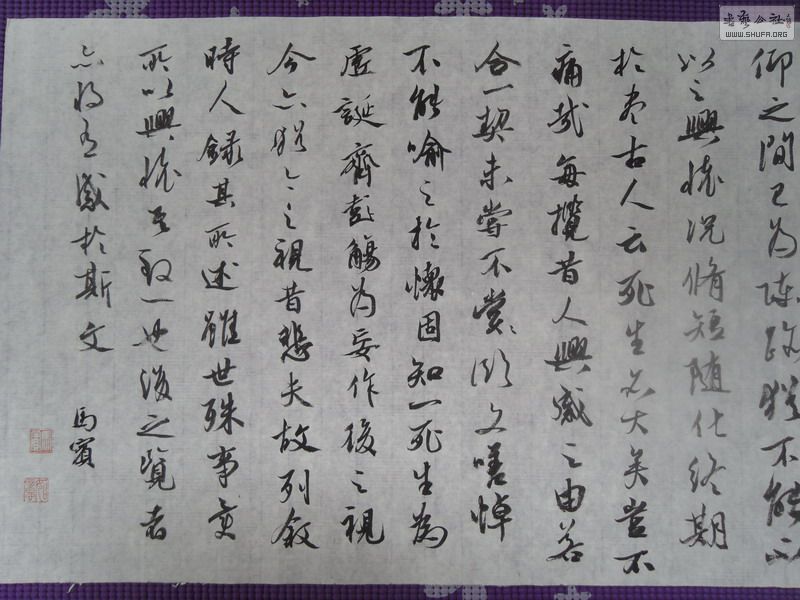 仰之間已為陳跡猶不能不
以之興懷況脩短隨化終期
於盡古人云死生亦大矣豈不
痛哉每攬昔人興感之由若
合一契未嘗不嘗臨文嗟悼
不能喻之於懷固知一死生為
虛誕齊彭觴為妄作後之視
今亦猶今之視昔悲夫故列敘
時人錄其所述雖世殊事異
所以興懷其致一也後之覽者
亦將有感於斯文
馬賓
書藝公社
WWW.SHUFA.ORG